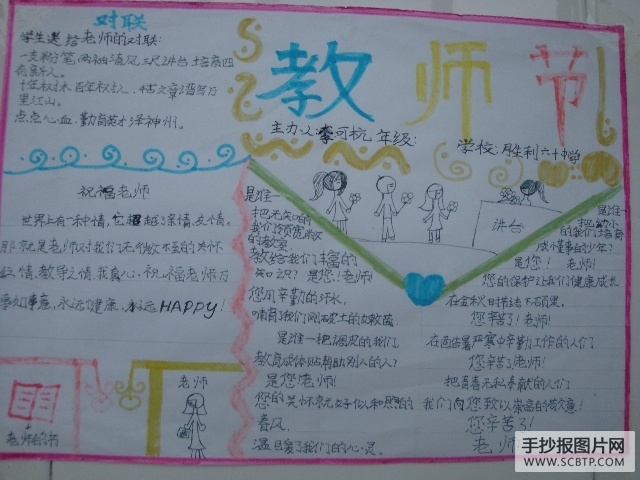 对联
学生送给老师的对联:
一支粉笔,两袖清风,三尺讲台,培育四
十年树木,百年树人,
里江山。
点点心血,勤育英才泽神州。
教师节
主办人:李可杭 年级:
学校:胜利六十中学
祝福老师
世界上有一种情,它超越了亲情、友情。
那就是老师对我们无微不至的关怀
之情,教导之情,我真心祝福老师万
事如意,永远健康,永远HAPPY!
老师的书
老师
是谁一
把无知的
我们领到宽敞
的教室,
教给我们丰富的
知识? 是您!老师!
您用辛勤的汗水,
哺育了我们刚破土的幼嫩苗,
是谁一把调皮的我们,
教育成体贴帮助别人的人?
是您!老师!
您的关怀就好似和煦的
春风,
温暖了我们的心灵。
讲台
是谁一
把幼小
的我们培育
成懂事的少年?
是您! 老师!
您的保护让我们健康成长
在金秋时节
您辛苦了!老师!
在酷暑严寒中辛勤工作的人们
您辛苦了老师!
把青春无私奉献的人们
我们向您致以崇高的敬意!
您辛苦了!
老师
手抄报图片网
WWW.SCBTP.COM